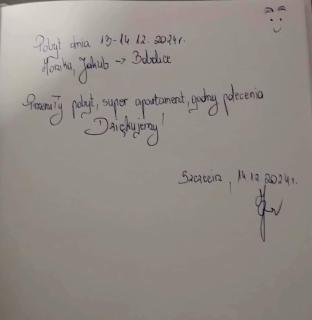 Pobyt dnia 13-14.12.2024r.
Monika, Jakub → Bobolice
Przemiły pobyt, super apartament, godny polecenia
Dziękujemy!
Szczecin, 14.12.2024r.